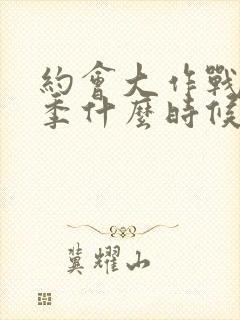 約會大作戰
季什麼時候
冀耀山